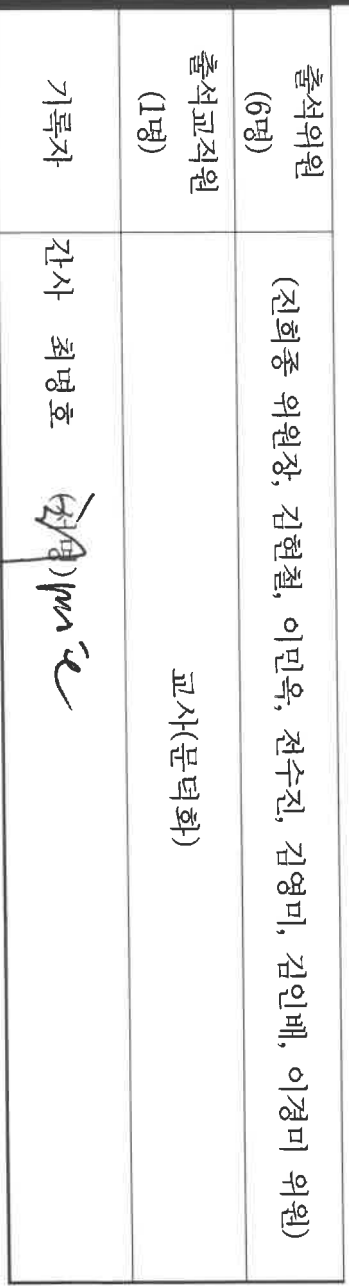 출석위원
(6명)
(진희종 위원장, 김현철, 이민옥, 전수진, 김영미, 김인배, 이경미 위원)
출석교직원
(1명)
교사(문덕화)
기록자
간사 최명호 (서명)